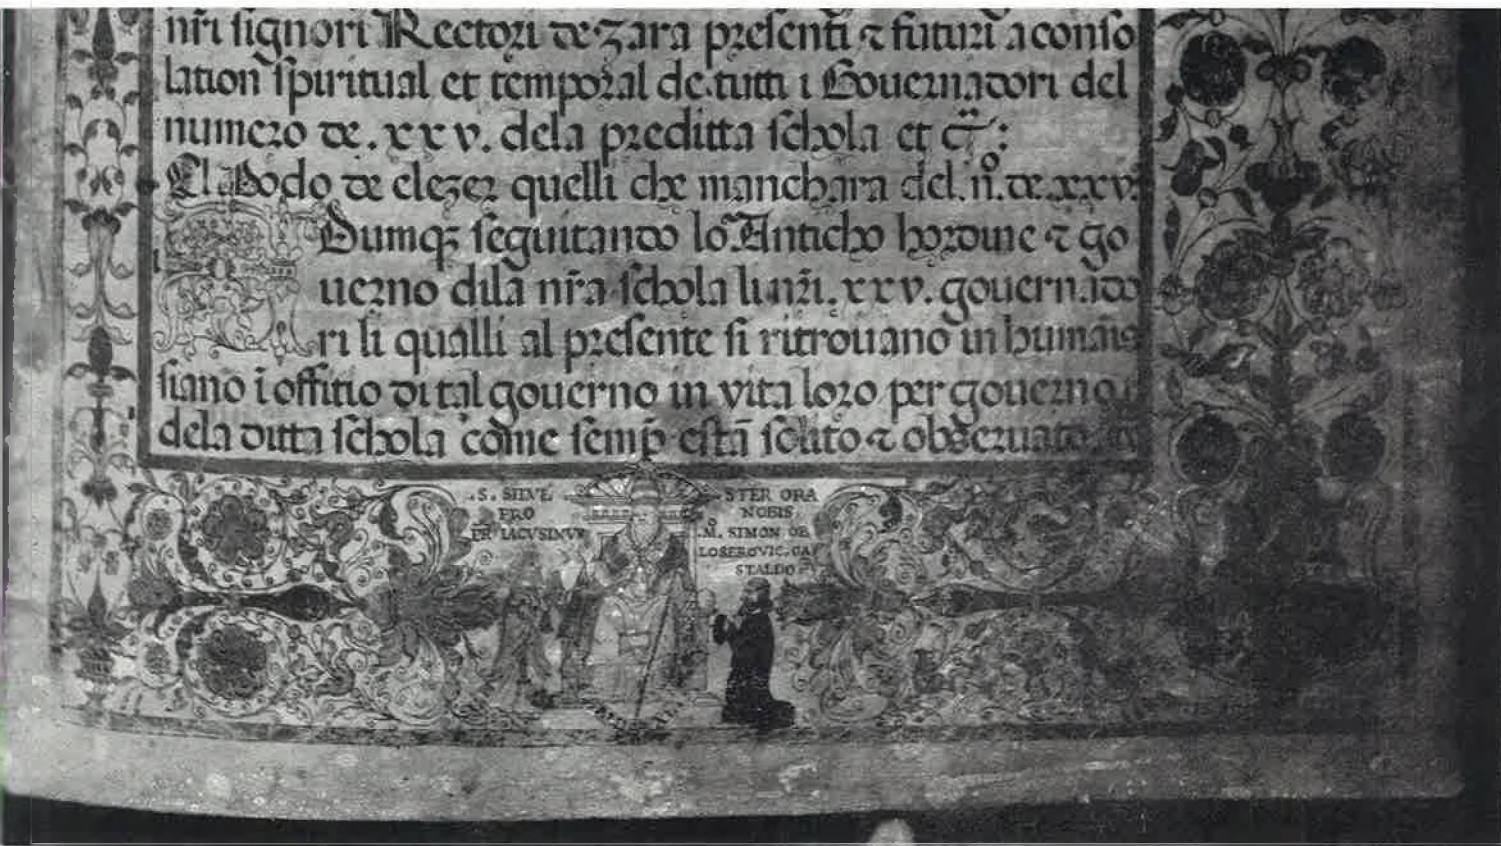 nr̄i signori Rectori de zara presenti ⁊ futuri a conso
lation̄ spiritual et temporal de tutti i Gouernadori del
numero de . xxv . dela preditta schola et c̄ :
El Modo de elezer quelli che manchara del . n.º de . xxv :
Dumq₃ seguitando lo Anticho hordine ⁊ go
uerno dila nr̄a schola li nr̄i . xxv . gouernado
ri li qualli al presente si ritrouano in humanis
siano ī offitio di tal gouerno in vita loro per gouerno
dela ditta schola come semp̄ està solito ⁊ obseruato
. S . SILVE STER ORA
PRO NOBIS
PR̄ IACVSINVS . M̊ . SIMON DE
LOSEROVIC . GA
STALDO